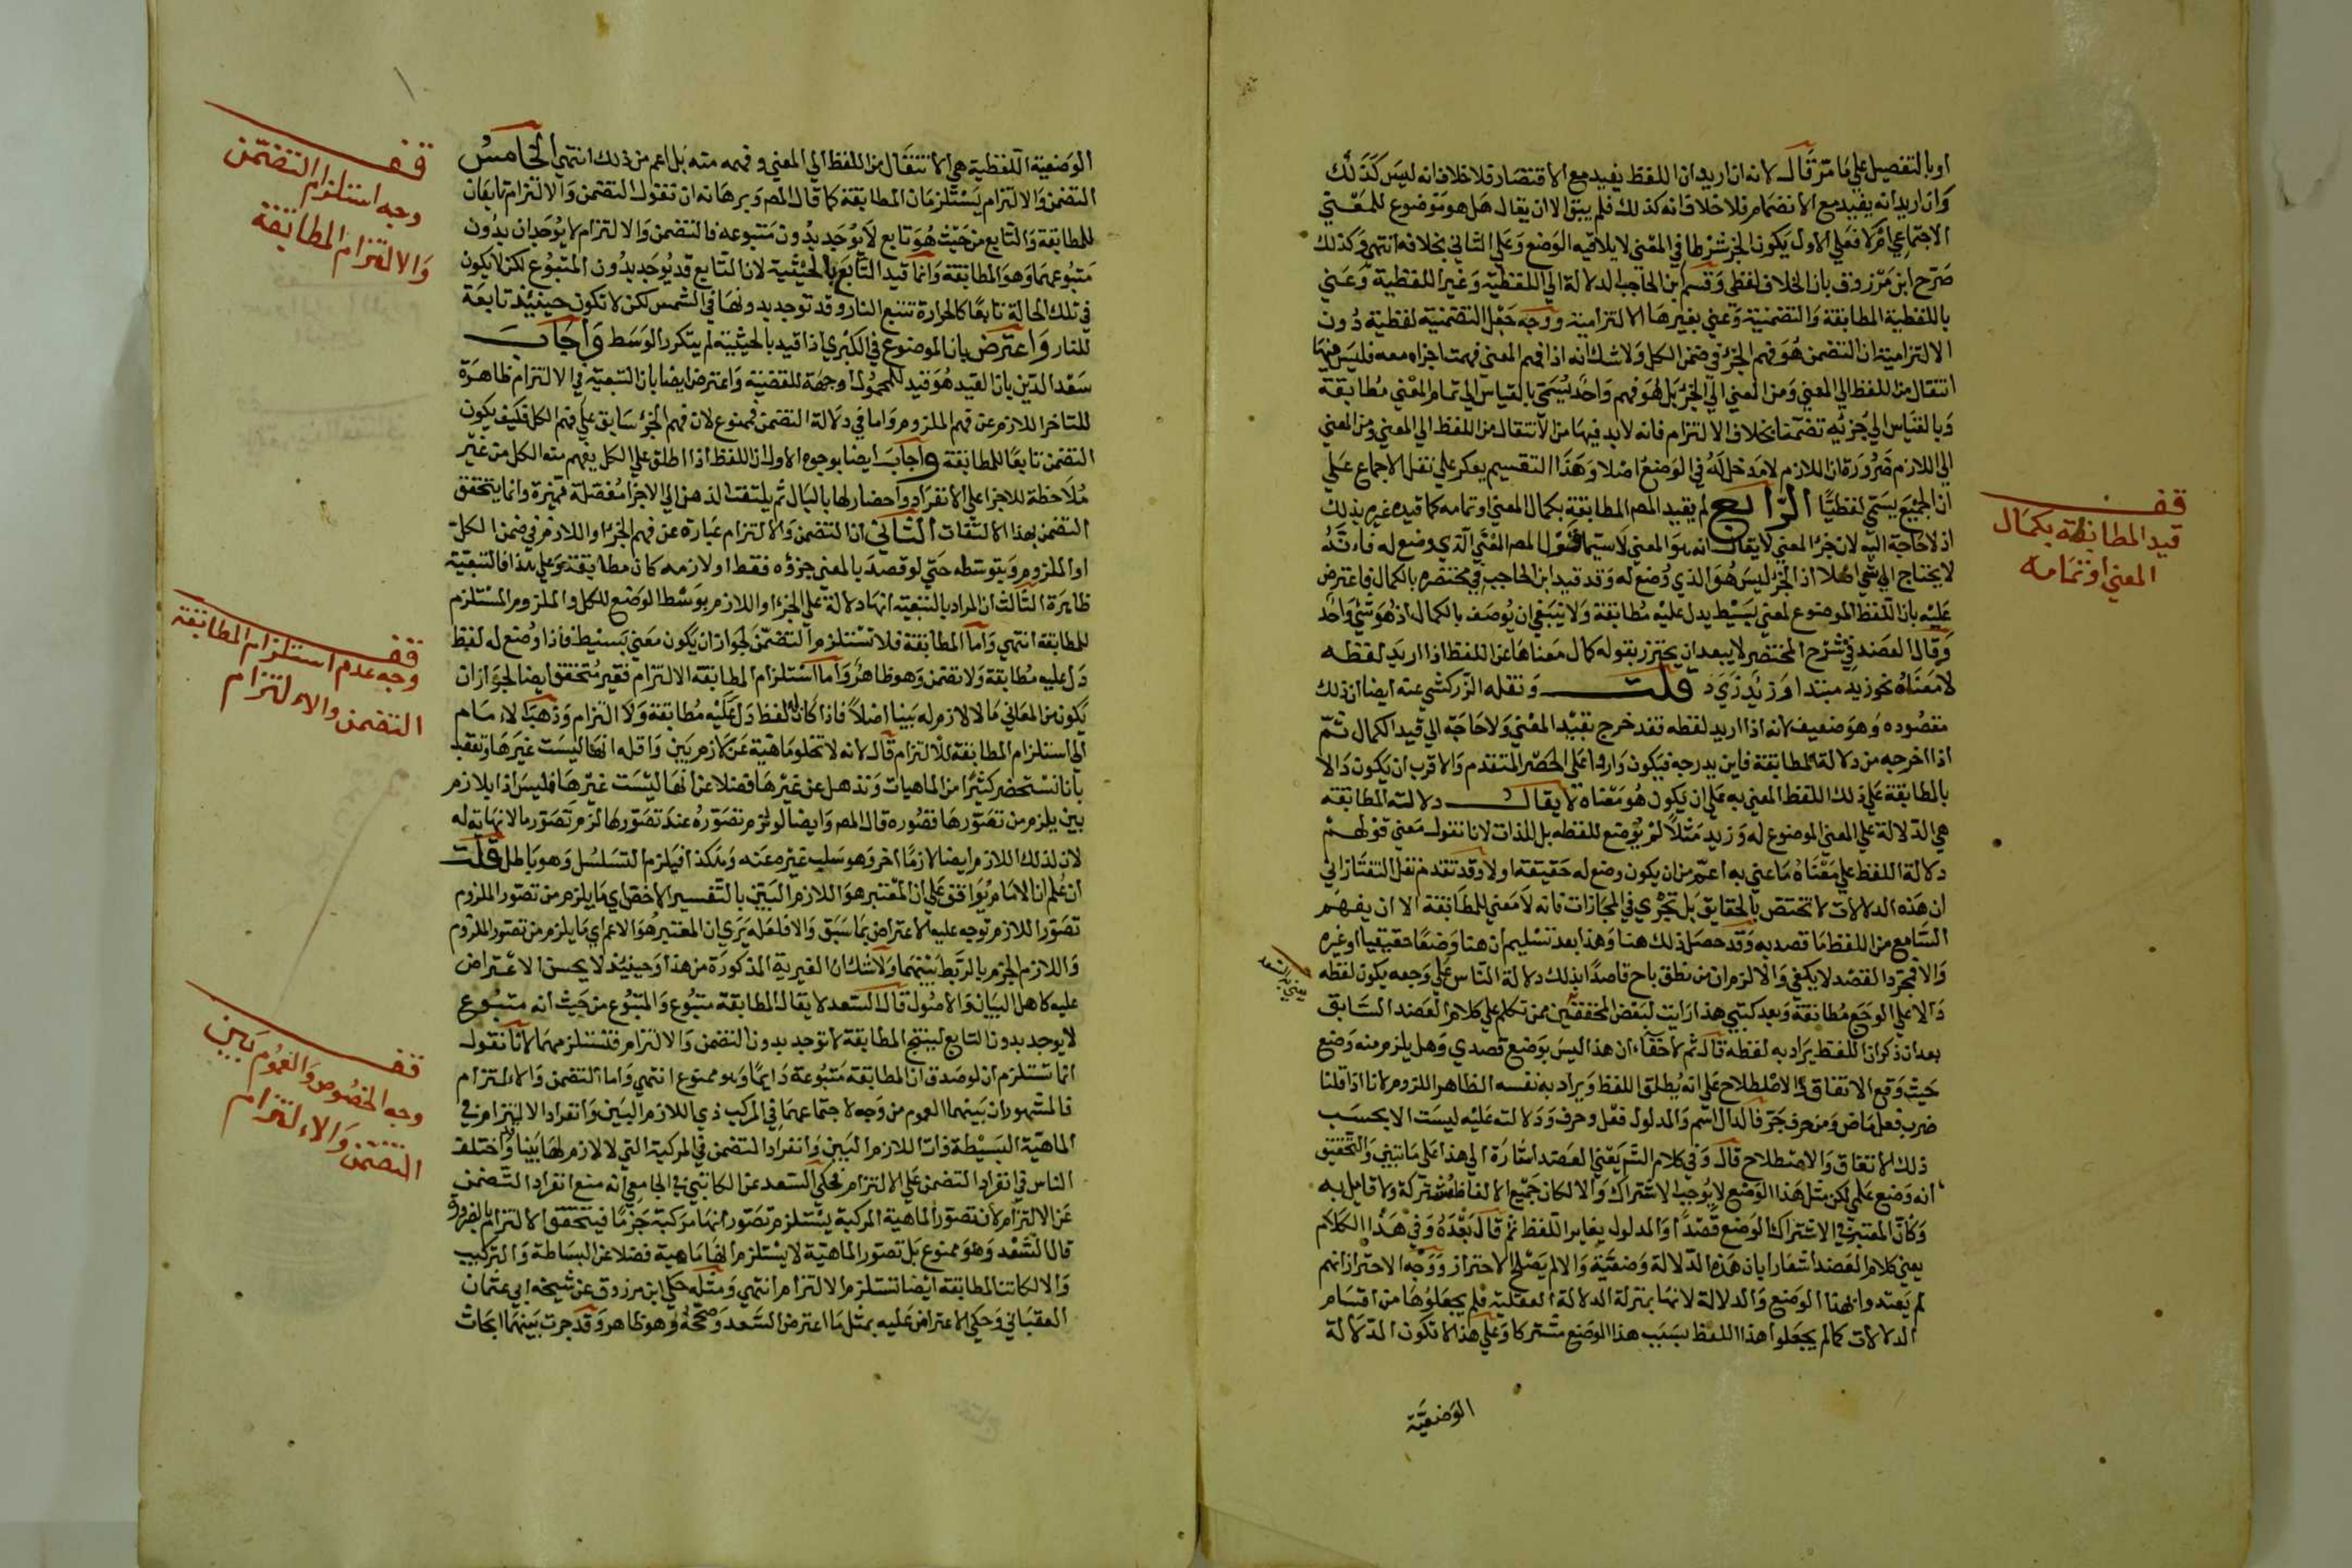 اوبالتفصيل علي ما مر قال لانه ان اريد ان اللفظ يفيد مع الاقتصار فلا خلاف انه ليس كذلك
وان اريد انه يفيد مع الانضمام فلا خلاف انه كذلك فلم يبق الا ان يقال هل هو موضوع للمعني
الاجتماعي ام لا فعلي الاول يكون الجزء شرطا في المعني لا يلاقيه الوضع وعلي الثاني بخلافه انتهي وكذلك
صرح ابن مرزوق بان الخلاف لفظي وقسم ابن الحاجب الدلالة الي اللفظية وغير اللفظية وعني
باللفظية المطابقة والتضمنية وعني بغيرها الالتزامية ووجه جعل التضمنية لفظية دون
الالتزامية ان التضمن هو فهم الجزء في ضمن الكل ولا شك انه اذا فهم المعني فهمت اجزاوه معه فليس فيهما
انتقال من اللفظ الي المعني ومن المعني الي الجزء بل هو فهم واحد يسمي بالقياس الي تمام المعني مطابقة
وبالقياس الي جزئه تضمنا بخلاف الالتزام فانه لابد فيها من الانتقال من اللفظ الي المعني ومن المعني
الي اللازم ضرورة ان اللازم لا مدخل له في الوضع اصلا وهذا التقسيم يعكر علي نقل الاجماع علي
ان الجميع يسمي لفظيا الرابع لم يقيد المص المطابقة بكمال المعني او تمامه كما قيده غيره بذلك
اذ لا حاجة اليه لان جزء المعني لا يقال انه هو المعني لاسيما وقول المص المعني الذي وضع له فانه
لا يحتاج الي شي اصلا اذ الجزء ليس هو الذي وضع له وقد قيد ابن الحاجب في مختصره بالكمال فاعترض
عليه بان اللفظ الموضوع لمعني بسيط يدل عليه مطابقة ولا ينبغي ان يوصف بالكمال اذ هو شي واحد
وقال العضد في شرح المختصر لا يبعد ان يحترز بقوله كمال معناها عن اللفظ اذا اريد لفظه
لا معناه نحو زيد مبتدا وزيد زي د قلت ونقله الزركشي عنه ايضا ان ذلك
مقصوده وهو ضعيف لانه اذا اريد لفظه فقد خرج بقيد المعني ولا حاجة الي قيد الكمال ثم
اذا اخرجه من دلالة المطابقة فاين يدرجه فيكون واردا علي الحصر المتقدم والاقرب ان يكون دالا
بالمطابقة علي ذلك اللفظ المعني به علي ان يكون هو معناه لا يقال دلالته المطابقة
هي الدلالة علي المعني الموضوع له وزيد مثلا لم يوضع للفظه بل للذات لانا نقول معني قولهم
دلالة اللفظ علي معناه ما عني به اعم من ان يكون وضع له حقيقة او لا وقد تقدم نقل التفتازاني
ان هذه الدلالات لا تختص بالحقايق بل تجري في المجازات فانه لا معني للمطابقة الا ان يفهم
السامع من اللفظ ما قصد به وقد حصل ذلك هنا وهذا بعد تسليم ان هنا وضعا حقيقيا او غيره
والا فمجرد القصد لا يكفي والا لزم ان من نطق باح قاصدا بذلك دلالة الناس علي وجعه يكون لفظه
دالا علي الوجع مطابقة وبعد كتبي هذا رايت لبعض المحققين ممن تكلم علي كلام العضد السابق
بعد ان ذكر ان اللفظ يراد به لفظه قال ثم لا خفاء ان هذا ليس بوضع قصدي وهل يلزم منه وضع
حيث وقع الاتفاق والاصطلاح علي انه يطلق اللفظ ويراد به نفسه الظاهر اللزوم لانا اذا قلنا
ضرب فعل ماض ومن حرف جر فالدال اسم والمدلول فعل وحرف ودلالته عليه ليست الا بحسب
ذلك الاتفاق والاصطلاح قال وفي كلام الشم يعني العضد اشارة الي هذا علي ما تبين والتحقيق
انه وضع علمي لكن مثل هذا الوضع لا يوجب الاشتراك والا لكان جميع الالفاظ مشتركة ولا قايل به
وكان المعتبر في الاشتراك الوضع قصدا والمدلول يغاير اللفظ ثم قال بعده وفي هذا الكلام
يعني كلام العضد اشعارا بان هذه الدلالة وضعية والا لم يصلح الاحتراز ووجه الاحتراز انهم
لم يعتدوا بهذا الوضع والدلالة لانها بمنزلة الدلالة العقلية فلم يجعلوها من اقسام
الدلالات كما لم يجعلوا هذا اللفظ بسبب هذا الوضع مشتركا وعلي هذا لا تكون الدلالة
الوضعية
قف
قيد المطابقة بكمال
المعني او تمامه
الوضعية اللفظية هي الانتقال من اللفظ الي المعني وفهمه منه بل اعم من ذلك انتهي الخامس
التضمن والالتزام يستلزمان المطابقة كما قال المص وبرهانه ان تقول التضمن والالتزام تابعان
للمطابقة والتابع من حيث هو تابع لا يوجد بدون متبوعه فالتضمن والالتزام لا يوجدان بدون
متبوعهما وهو المطابقة وانما قيد التابع بالحيثية لان التابع قد يوجد بدون المتبوع لكن لا يكون
في تلك الحالة تابعا كالحرارة تتبع النار وقد توجد بدونها في الشمس لكن لا تكون حينيذ تابعة
للنار واعترض بان الموضوع في الكبري اذا قيد بالحيثية لم يتكرر الوسط واجاب
سعد الدين بان القيد هو قيد للمحمول او جهة للقضية واعترض ايضا بان التبعية في الالتزام ظاهرة
للتاخر اللازم عن فهم الملزوم واما في دلالة التضمن فممنوع لان فهم الجزء سابق علي فهم الكل فكيف يكون
التضمن تابعا للمطابقة واجاب ايضا بوجوه الاول ان اللفظ اذا اطلق علي الكل يفهم منه الكل من غير
ملاحظة للاجزا علي الانفراد واحضار لها بالبال ثم يلتفت الذهن الي الاجزا مفصلة متميزة وانما يتحقق
التضمن بهذا الالتفات الثاني ان التضمن والالتزام عبارة عن فهم الجزء او اللازم في ضمن الكل
او الملزوم وبتوسطه حتي لو قصد بالمعني جزؤه فقط او لازمه كان مطابقة وعلي هذا فالتبعية
ظاهرة الثالث ان المراد بالتبعية انها دلالة علي الجزء او اللازم بوسط الوضع للكل والملزوم المستلزم
للمطابقة انتهي واما المطابقة فلا تستلزم التضمن لجواز ان يكون معني بسيط فاذا وضع له لفظ
دل عليه مطابقة ولا تضمن وهو ظاهر واما استلزام المطابقة الالتزام فغير متحقق ايضا لجواز ان
يكون من المعاني ما لا لازم له بينا اصلا فاذا كان له لفظ دل عليه مطابقة ولا التزام وذهب الامام
الي استلزام المطابقة للالتزام قال لانه لا تخلو ماهية عن لازم بين واقله انها ليست غيرها وتعقب
بانا نستحضر كثيرا من الماهيات ونذهل عن غيرها فضلا عن انها ليست غيرها فليس اذا بلازم
بين يلزم من تصورها تصوره قال المص وايضا لو لزم تصوره عند تصورها لزم تصور ما لا نهاية له
لان لذلك اللازم ايضا لازما اخر وهو سلب غيره عنه وهكذا فيلزم التسلسل وهو باطل قلت
ان علم ان الامام يوافق علي ان المعتبر هو اللازم البين بالتفسير الاخص اي ما يلزم من تصور الملزوم
تصور اللازم توجه عليه الاعتراض بما سبق والا فلعله يري ان المعتبر هو الاعم اي ما يلزم من تصور الملزوم
واللازم الجزم بالربط بينهما ولا شك ان الغيرية المذكورة من هذا وحينيذ لا يحسن الاعتراض
عليه كاهل البيان والاصول قال السعد لا يقال المطابقة متبوع والمتبوع من حيث انه متبوع
لا يوجد بدون التابع لينتج المطابقة لا توجد بدون التضمن والالتزام فتستلزمهما لانا نقول
انما تستلزم ان لو صدق ان المطابقة متبوعة دايما وهو ممنوع انتهي واما التضمن والالتزام
فالمشهور ان بينهما العموم من وجه لاجتماعهما في المركب ذي اللازم البين وانفراد الالتزام في
الماهية البسيطة ذات اللازم البين وانفراد التضمن في المركبة التي لا لازم لها بينا وقد اختلف
الناس في انفراد التضمن علي الالتزام فحكي السعد عن الكاتبي في الجامع انه منع انفراد التضمن
عن الالتزام لان تصور الماهية المركبة يستلزم تصور انها مركبة جزما فيتحقق الالتزام بالضرورة
قال السعد وهو ممنوع بل تصور الماهية لا يستلزم انها ماهية فضلا عن البساطة والتركيب
والا لكانت المطابقة ايضا تستلزم الالتزام انتهي ومثله حكي ابن مرزوق عن شيخه ابي عثمان
العقباني وحكي الاعتراض عليه بمثل ما اعترض السعد وصححه وهو ظاهر وقد جرت بينهما ابحاث
قف
وجه استلزام التضمن
والالتزام المطابقة
قف
وجه عدم استلزام المطابقة
التضمن والالتزام
قف
وجه الخصوص والعموم بين
التضمن والالتزام